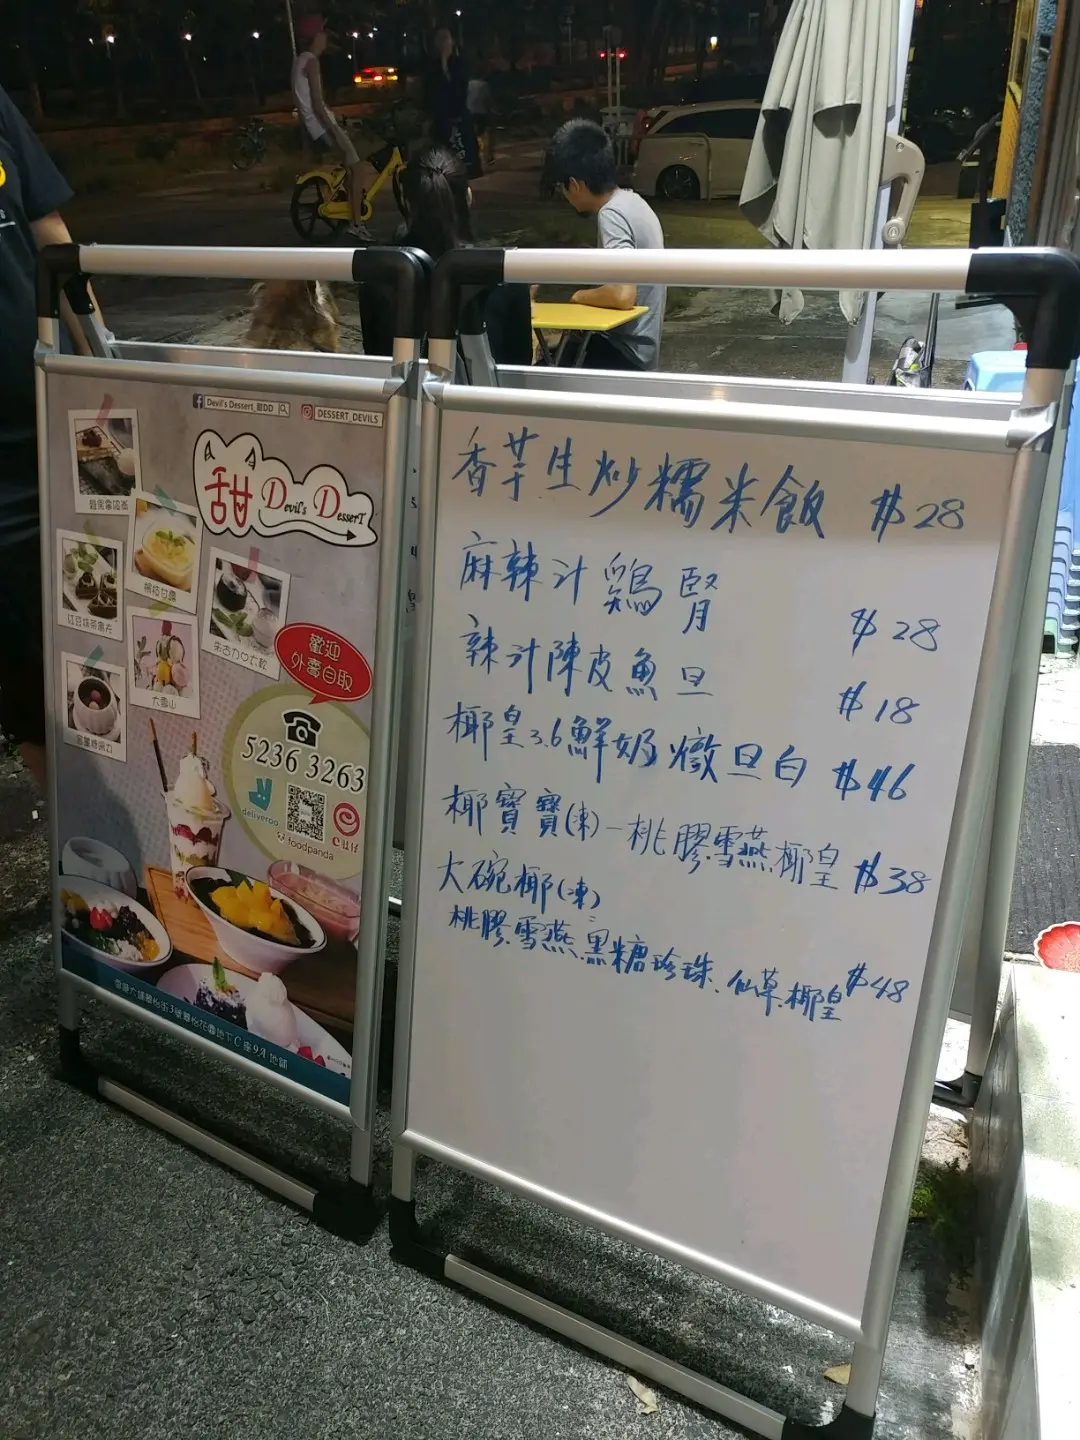 Devil's Dessert_甜DD
DESSERT_DEVILS
甜 Devil's DesserT
楊枝甘露
朱古力心太軟
大雪山
歡迎
外賣自取
5236 3263
deliveroo
foodpanda
香芋生炒糯米飯 $28
麻辣汁鷄腎 $28
辣汁陳皮魚旦 $18
椰皇3.6鮮奶燉旦白 $46
椰寶寶(凍)-桃膠.雪燕椰皇 $38
大碗椰(凍)
桃膠.雪燕.黑糖珍珠、仙草.椰皇 $48